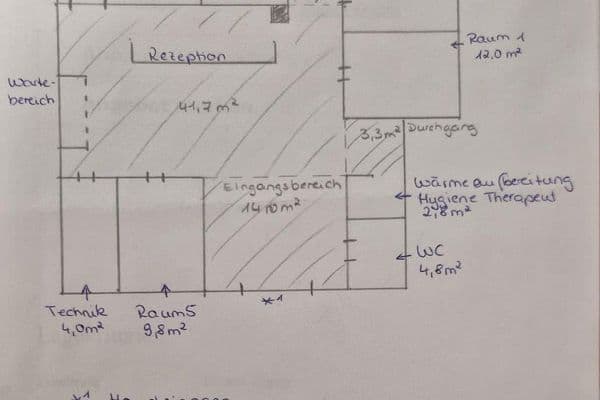 Rezeption
Raum 1
12,0 m²
Warte-
bereich
41,7 m²
3,3 m² Durchgang
Eingangsbereich
14,0 m²
Wärmeaufbereitung
Hygiene Therapeut
2,8 m²
WC
4,8 m²
*1
Technik
4,0 m²
Raum 5
9,8 m²
*1